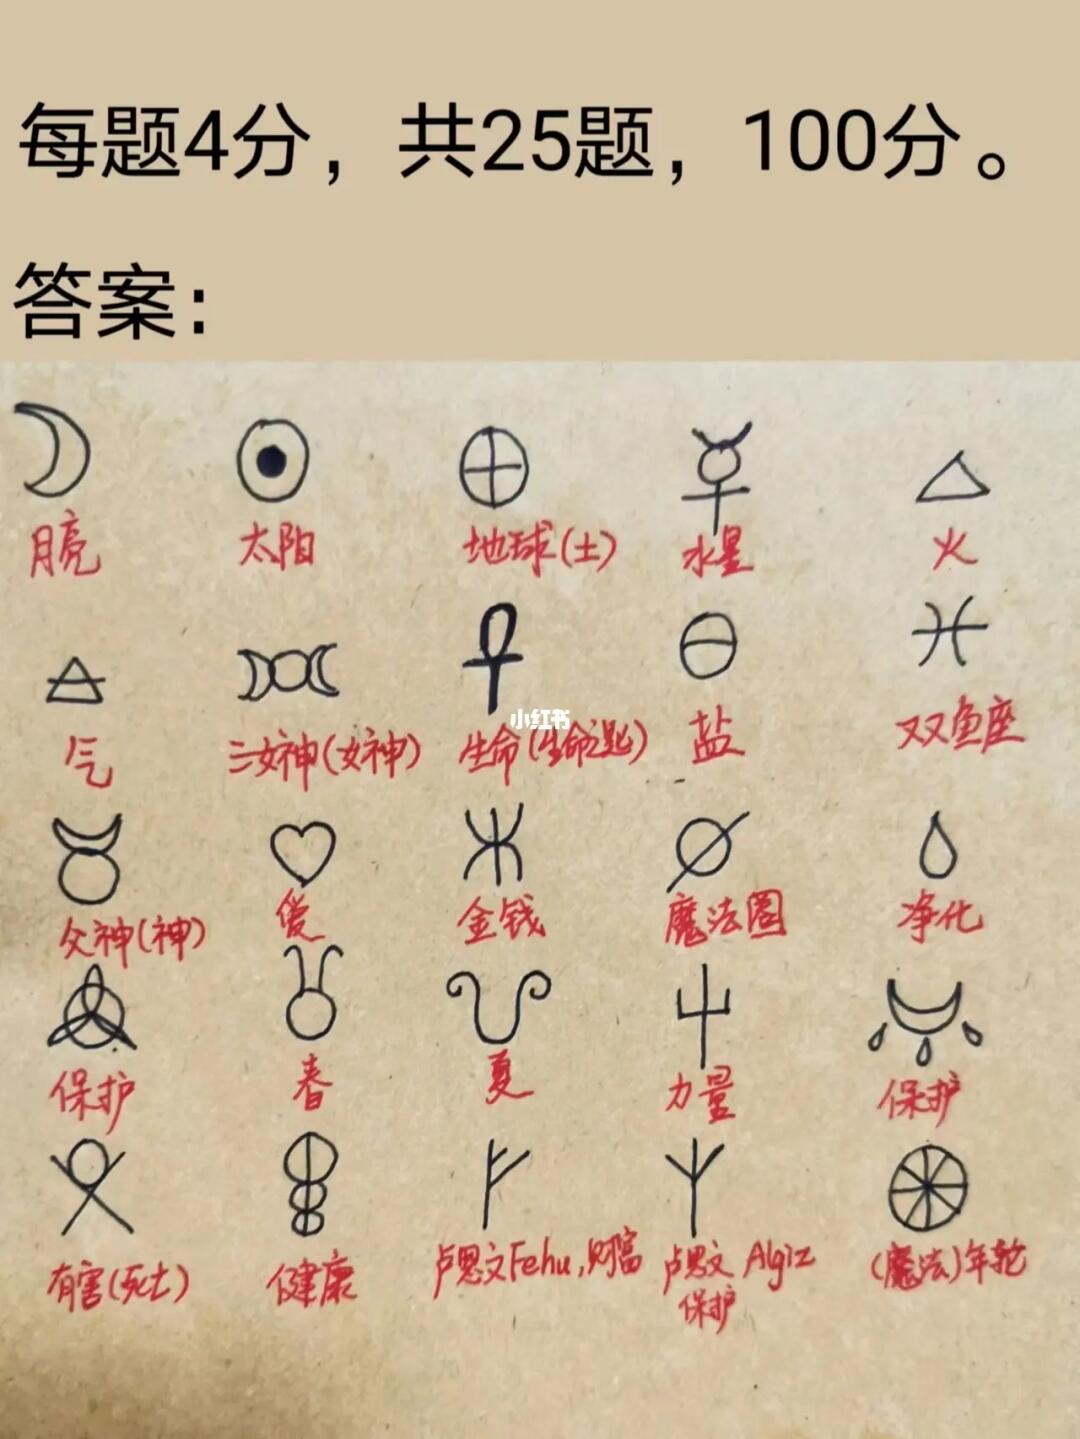 每题4分，共25题，100分。
答案：
月亮 太阳 地球(土) 水星 火
气 三女神(女神) 生命(生命之匙) 盐 双鱼座
小红书
众神(神) 爱 金钱 魔法圈 净化
保护 春 夏 力量 保护
有害(死亡) 健康 卢恩文Fehu,财富 卢恩文 Algiz (魔法)年轮
保护